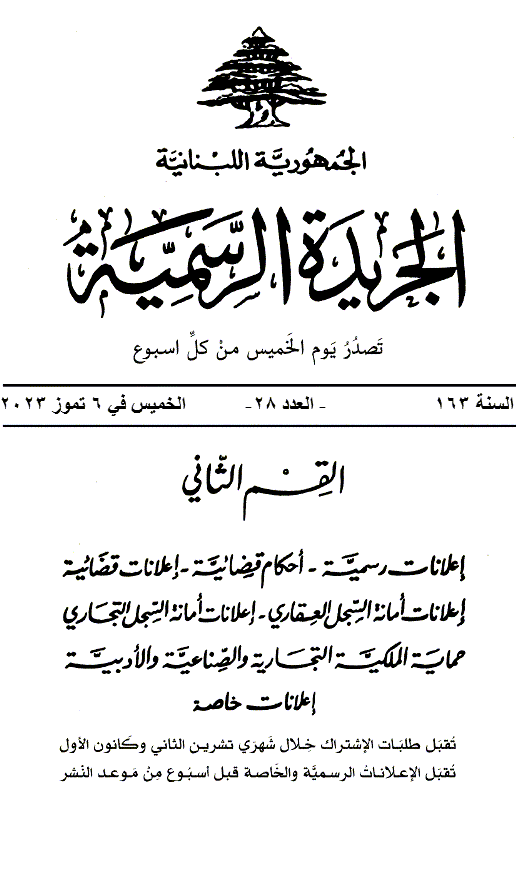 الجُمهُوريَّة اللبْنانيَّة
الجَريدَة الرَّسْمِيَّة
تَصدُرُ يَوم الخَميس منْ كلِّ اسبوع
السنة ١٦٣ - العدد ٢٨ - الخميس في ٦ تموز ٢٠٢٣
القِسْم الثّاني
إعلانات رسميَّة - أحكام قضائيَّة - إعلانات قضائية
إعلانات أمانة السِّجل العقاري - إعلانات أمانة السِّجل التجاري
حماية الملكيَّة التجارية والصِّناعيَّة والأدبيَّة
إعلانات خاصة
تُقبَل طلبَات الإشتراك خِلال شَهرَي تشرين الثاني وكَانون الأول
تُقبَل الإعلاناتُ الرسميَّة والخَاصة قبل أسبُوع مِنْ مَوعد النَشر